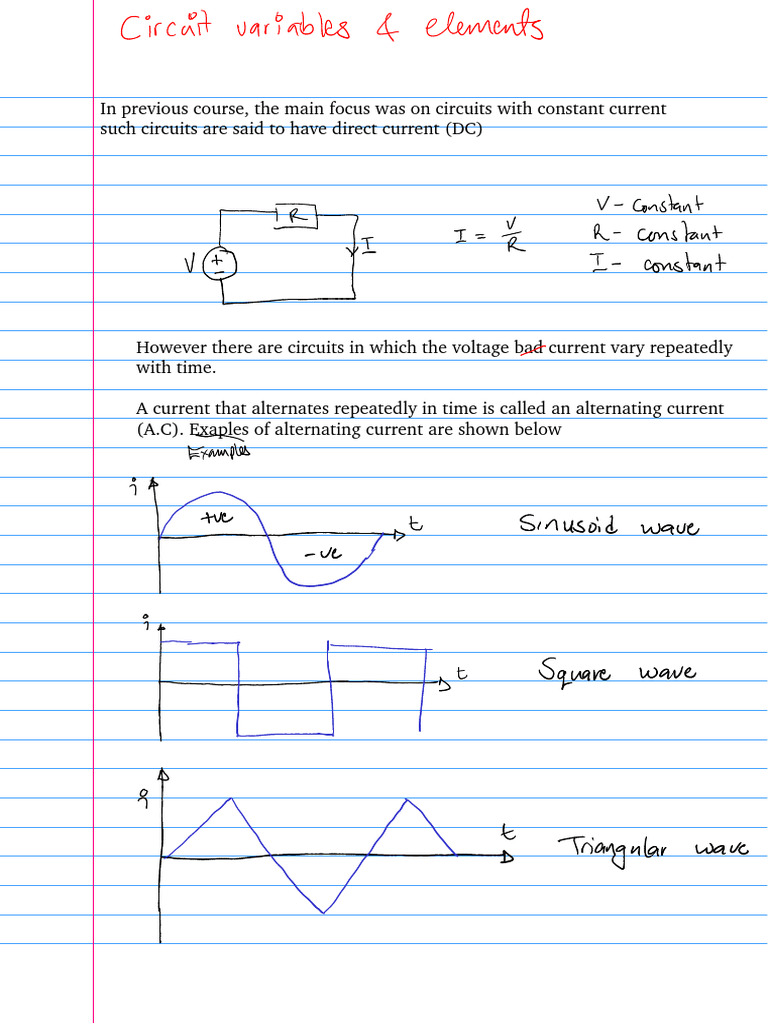 Circuit variables & elements
In previous course, the main focus was on circuits with constant current
such circuits are said to have direct current (DC)
R
V
+
−
I
I = V/R
V - constant
R - constant
I - constant
However there are circuits in which the voltage bad current vary repeatedly
with time.
A current that alternates repeatedly in time is called an alternating current
(A.C). Exaples of alternating current are shown below
Examples
i
+ve
-ve
t
Sinusoid wave
i
t
Square wave
t
Triangular wave